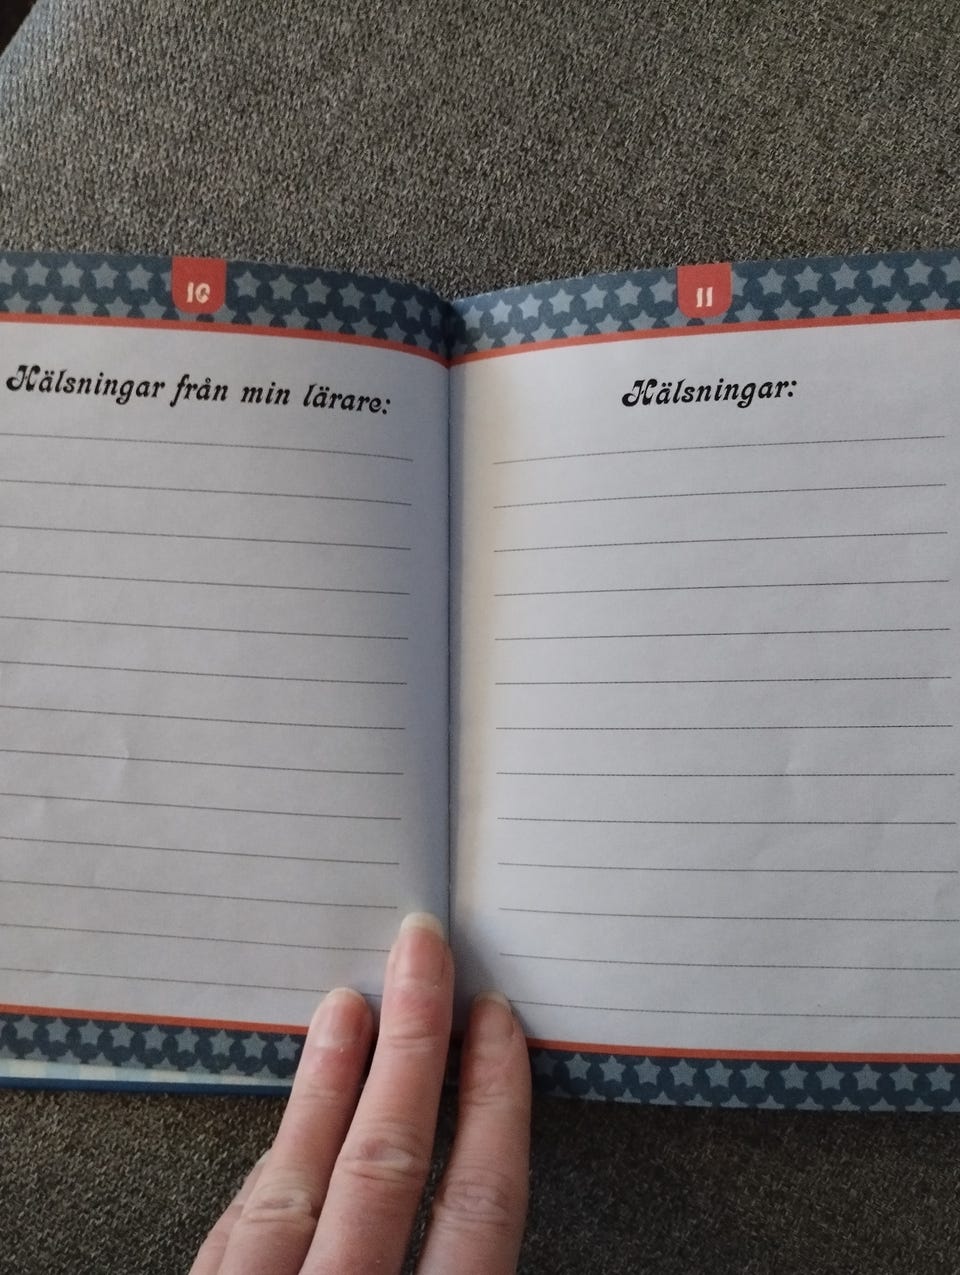 10
Hälsningar från min lärare:
11
Hälsningar: